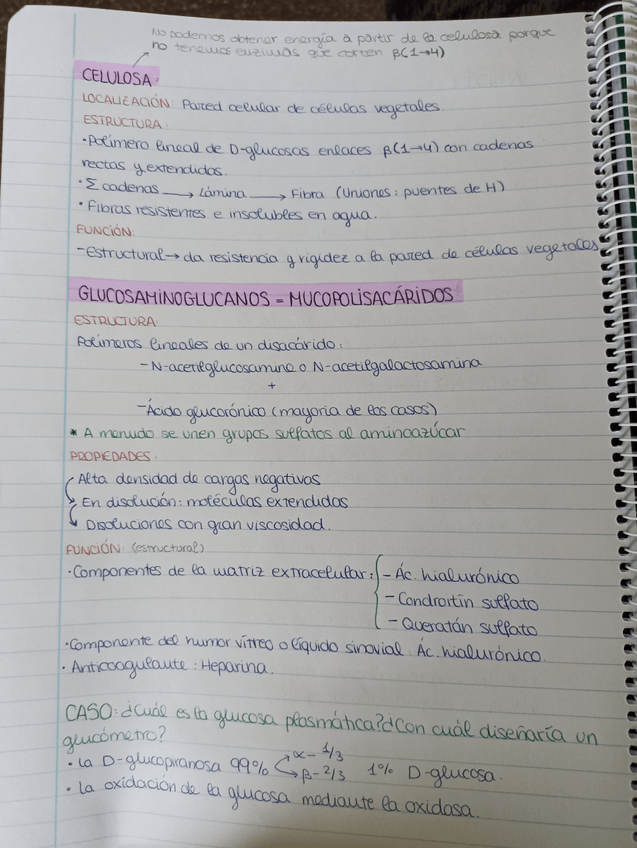 No podemos obtener energía a partir de la celulosa porque
no tenemos enzimas que corten β(1→4)
CELULOSA:
LOCALIZACIÓN: Pared celular de células vegetales.
ESTRUCTURA:
·Polímero lineal de D-glucosas enlaces β(1→4) con cadenas
rectas y extendidas.
·Σ cadenas → Lámina → Fibra (Uniones: puentes de H)
·Fibras resistentes e insolubles en agua.
FUNCIÓN:
-Estructural→ da resistencia y rigidez a la pared de células vegetales
GLUCOSAMINOGLUCANOS = MUCOPOLISACÁRIDOS
ESTRUCTURA:
Polímeros lineales de un disacárido:
-N-acetilglucosamina o N-acetilgalactosamina
+
-Ácido glucorónico (mayoría de los casos)
* A menudo se unen grupos sulfatos al aminoazúcar
PROPIEDADES:
Alta densidad de cargas negativas
→ En disolución: moléculas extendidas
→ Disoluciones con gran viscosidad.
FUNCIÓN: (estructural)
·Componentes de la matriz extracelular: { - Ác. hialurónico
- Condrortín sulfato
- Queratán sulfato
·Componente del humor vítreo o líquido sinovial: Ác. hialurónico.
·Anticoagulante: Heparina.
CASO: ¿Cuál es la glucosa plasmática? ¿Con cuál diseñaría un
glucómetro?
· La D-glucopiranosa 99% → α- 1/3
→ β- 2/3 1% D-glucosa.
· La oxidación de la glucosa mediante la oxidasa.